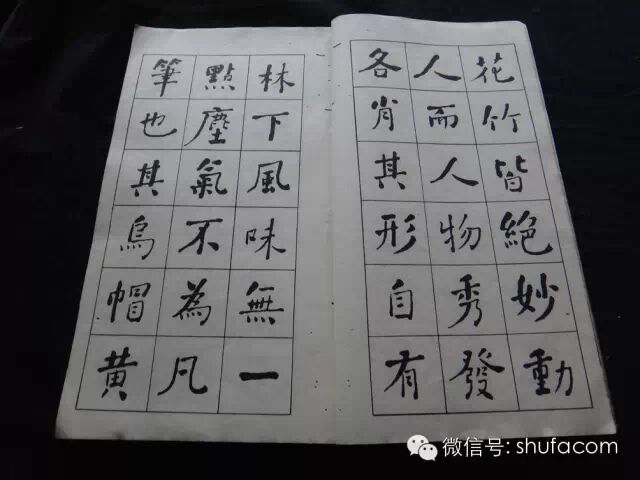 花竹皆絕妙動
人而人物秀發
各肖其形自有
林下風味無一
點塵氣不為凡
筆也其烏帽黄
微信号: shufacom